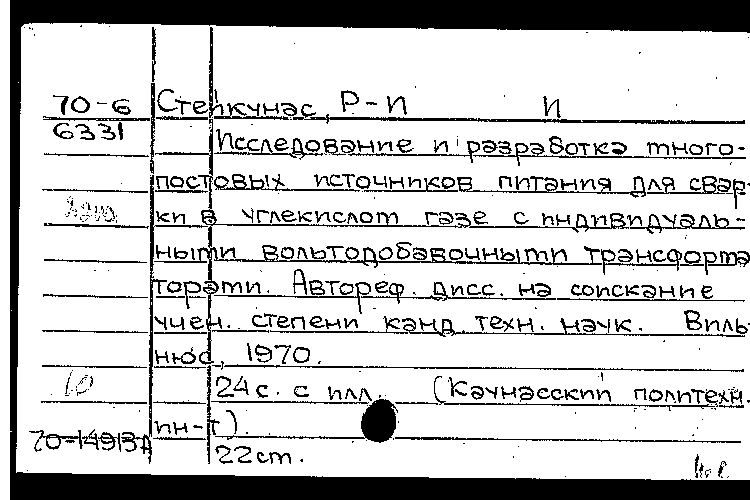 70-6 Стейкунас, Р-И И
6331 Исследование и разработка много-
постовых источников питания для свар-
ки в углекислом газе с индивидуаль-
ными вольтодобавочными трансформа
торами. Автореф. дисс. на соискание
учен. степени канд. техн. наук. Виль-
нюс, 1970.
10 24 с. с илл. (Каунасский политехн.
ин-т).
70-14913А 22 cm.